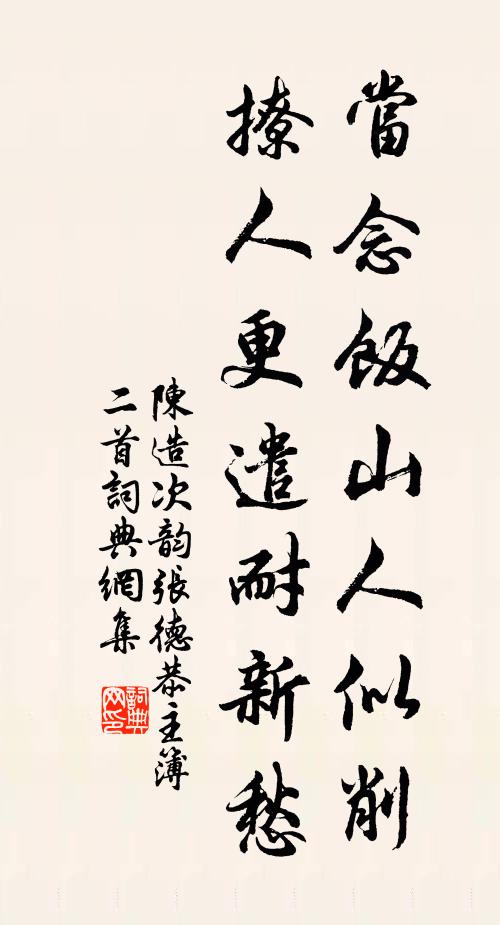 當念飯山人似削
撩人更遣耐新愁
陳造次韵張德恭主簿
二首詞典網集
詞典
网印